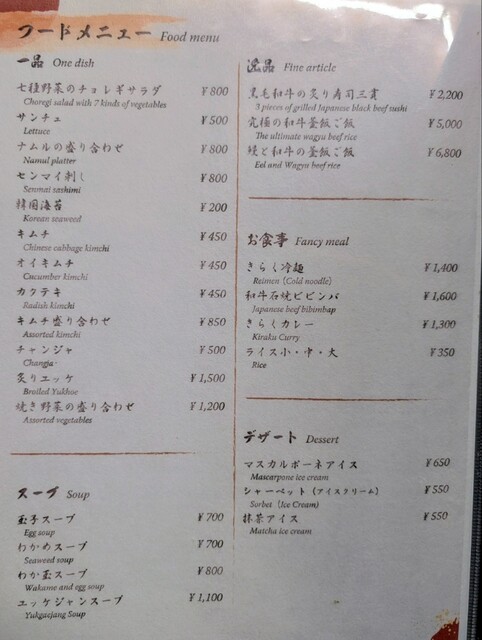 フードメニュー Food menu
一品 One dish
七種野菜のチョレギサラダ ¥800
Choregi salad with 7 kinds of vegetables
サンチュ ¥500
Lettuce
ナムルの盛り合わせ ¥800
Namul platter
センマイ刺し ¥800
Senmai sashimi
韓国海苔 ¥200
Korean seaweed
キムチ ¥450
Chinese cabbage kimchi
オイキムチ ¥450
Cucumber kimchi
カクテキ ¥450
Radish kimchi
キムチ盛り合わせ ¥850
Assorted kimchi
チャンジャ ¥500
Changja
炙りユッケ ¥1,500
Broiled Yukhoe
焼き野菜の盛り合わせ ¥1,200
Assorted vegetables
スープ Soup
玉子スープ ¥700
Egg soup
わかめスープ ¥700
Seaweed soup
わか玉スープ ¥800
Wakame and egg soup
ユッケジャンスープ ¥1,100
Yukgaejang Soup
逸品 Fine article
黒毛和牛の炙り寿司三貫 ¥2,200
3 pieces of grilled Japanese black beef sushi
究極の和牛釜飯ご飯 ¥5,000
The ultimate wagyu beef rice
鰻と和牛の釜飯ご飯 ¥6,800
Eel and Wagyu beef rice
お食事 Fancy meal
きらく冷麺 ¥1,400
Reimen (Cold noodle)
和牛石焼ビビンバ ¥1,600
Japanese beef bibimbap
きらくカレー ¥1,300
Kiraku Curry
ライス小・中・大 ¥350
Rice
デザート Dessert
マスカルポーネアイス ¥650
Mascarpone ice cream
シャーベット（アイスクリーム） ¥550
Sorbet (Ice Cream)
抹茶アイス ¥550
Matcha ice cream